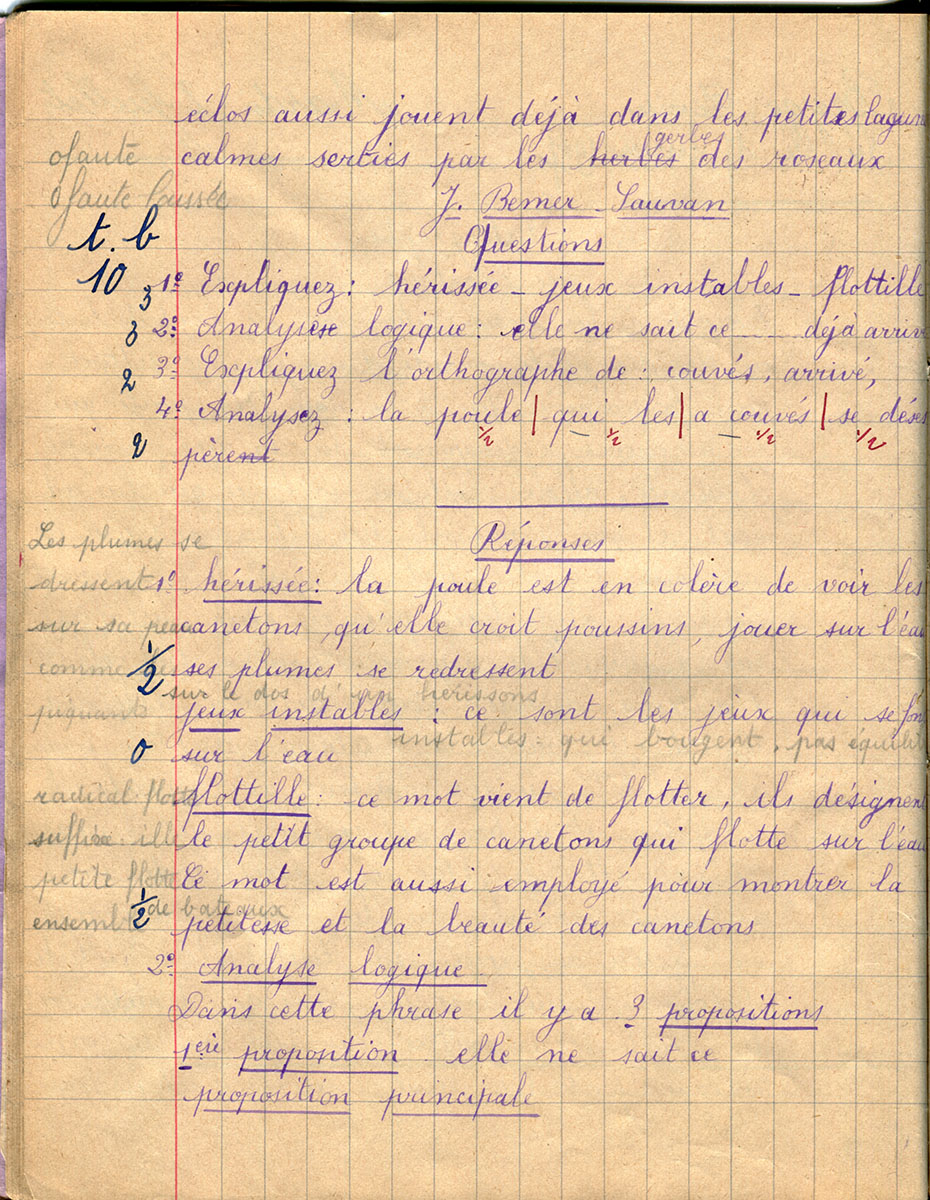 éclos aussi jouent déjà dans les petites lagun
0 faute
gerbes
calmes serties par les herbes des roseaux
0 faute laissée
J. Bemer-Sauvan
t. b
Questions
10
3 1º Expliquez : hérissée - jeux instables - flottille
3 2º Analyse logique : elle ne sait ce ____ déjà arriv
2 3º Expliquez l'orthographe de : couvés, arrivé,
4º Analysez : la poule | qui les | a couvés | se déses
1/2 1/2 1/2 1/2
2 pèrent
Réponses
Les plumes se
dressent
1º hérissée : la poule est en colère de voir les
sur sa peau
canetons, qu'elle croit poussins, jouer sur l'eau
comme
1/2 ses plumes se redressent
sur le dos d'un hérissons
piquants
jeux instables : ce sont les jeux qui se fon
instables : qui bougent, pas équilib
0 sur l'eau
radical flotte
flottille : ce mot vient de flotter, ils désignen
suffixe : ille
le petit groupe de canetons qui flotte sur l'eau
petite flotte
Ce mot est aussi employé pour montrer la
de bateaux
ensemble
1/2 petitesse et la beauté des canetons
2º Analyse logique.
Dans cette phrase il y a 3 propositions
1ère proposition elle ne sait ce
proposition principale